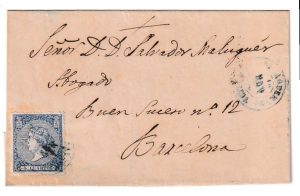 Señor D. D. Salvador Maluquér
Abogado
Buen Suceso nº 12
Barcelona